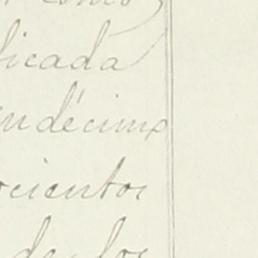 como
licada
endécimo
ocientos
de los